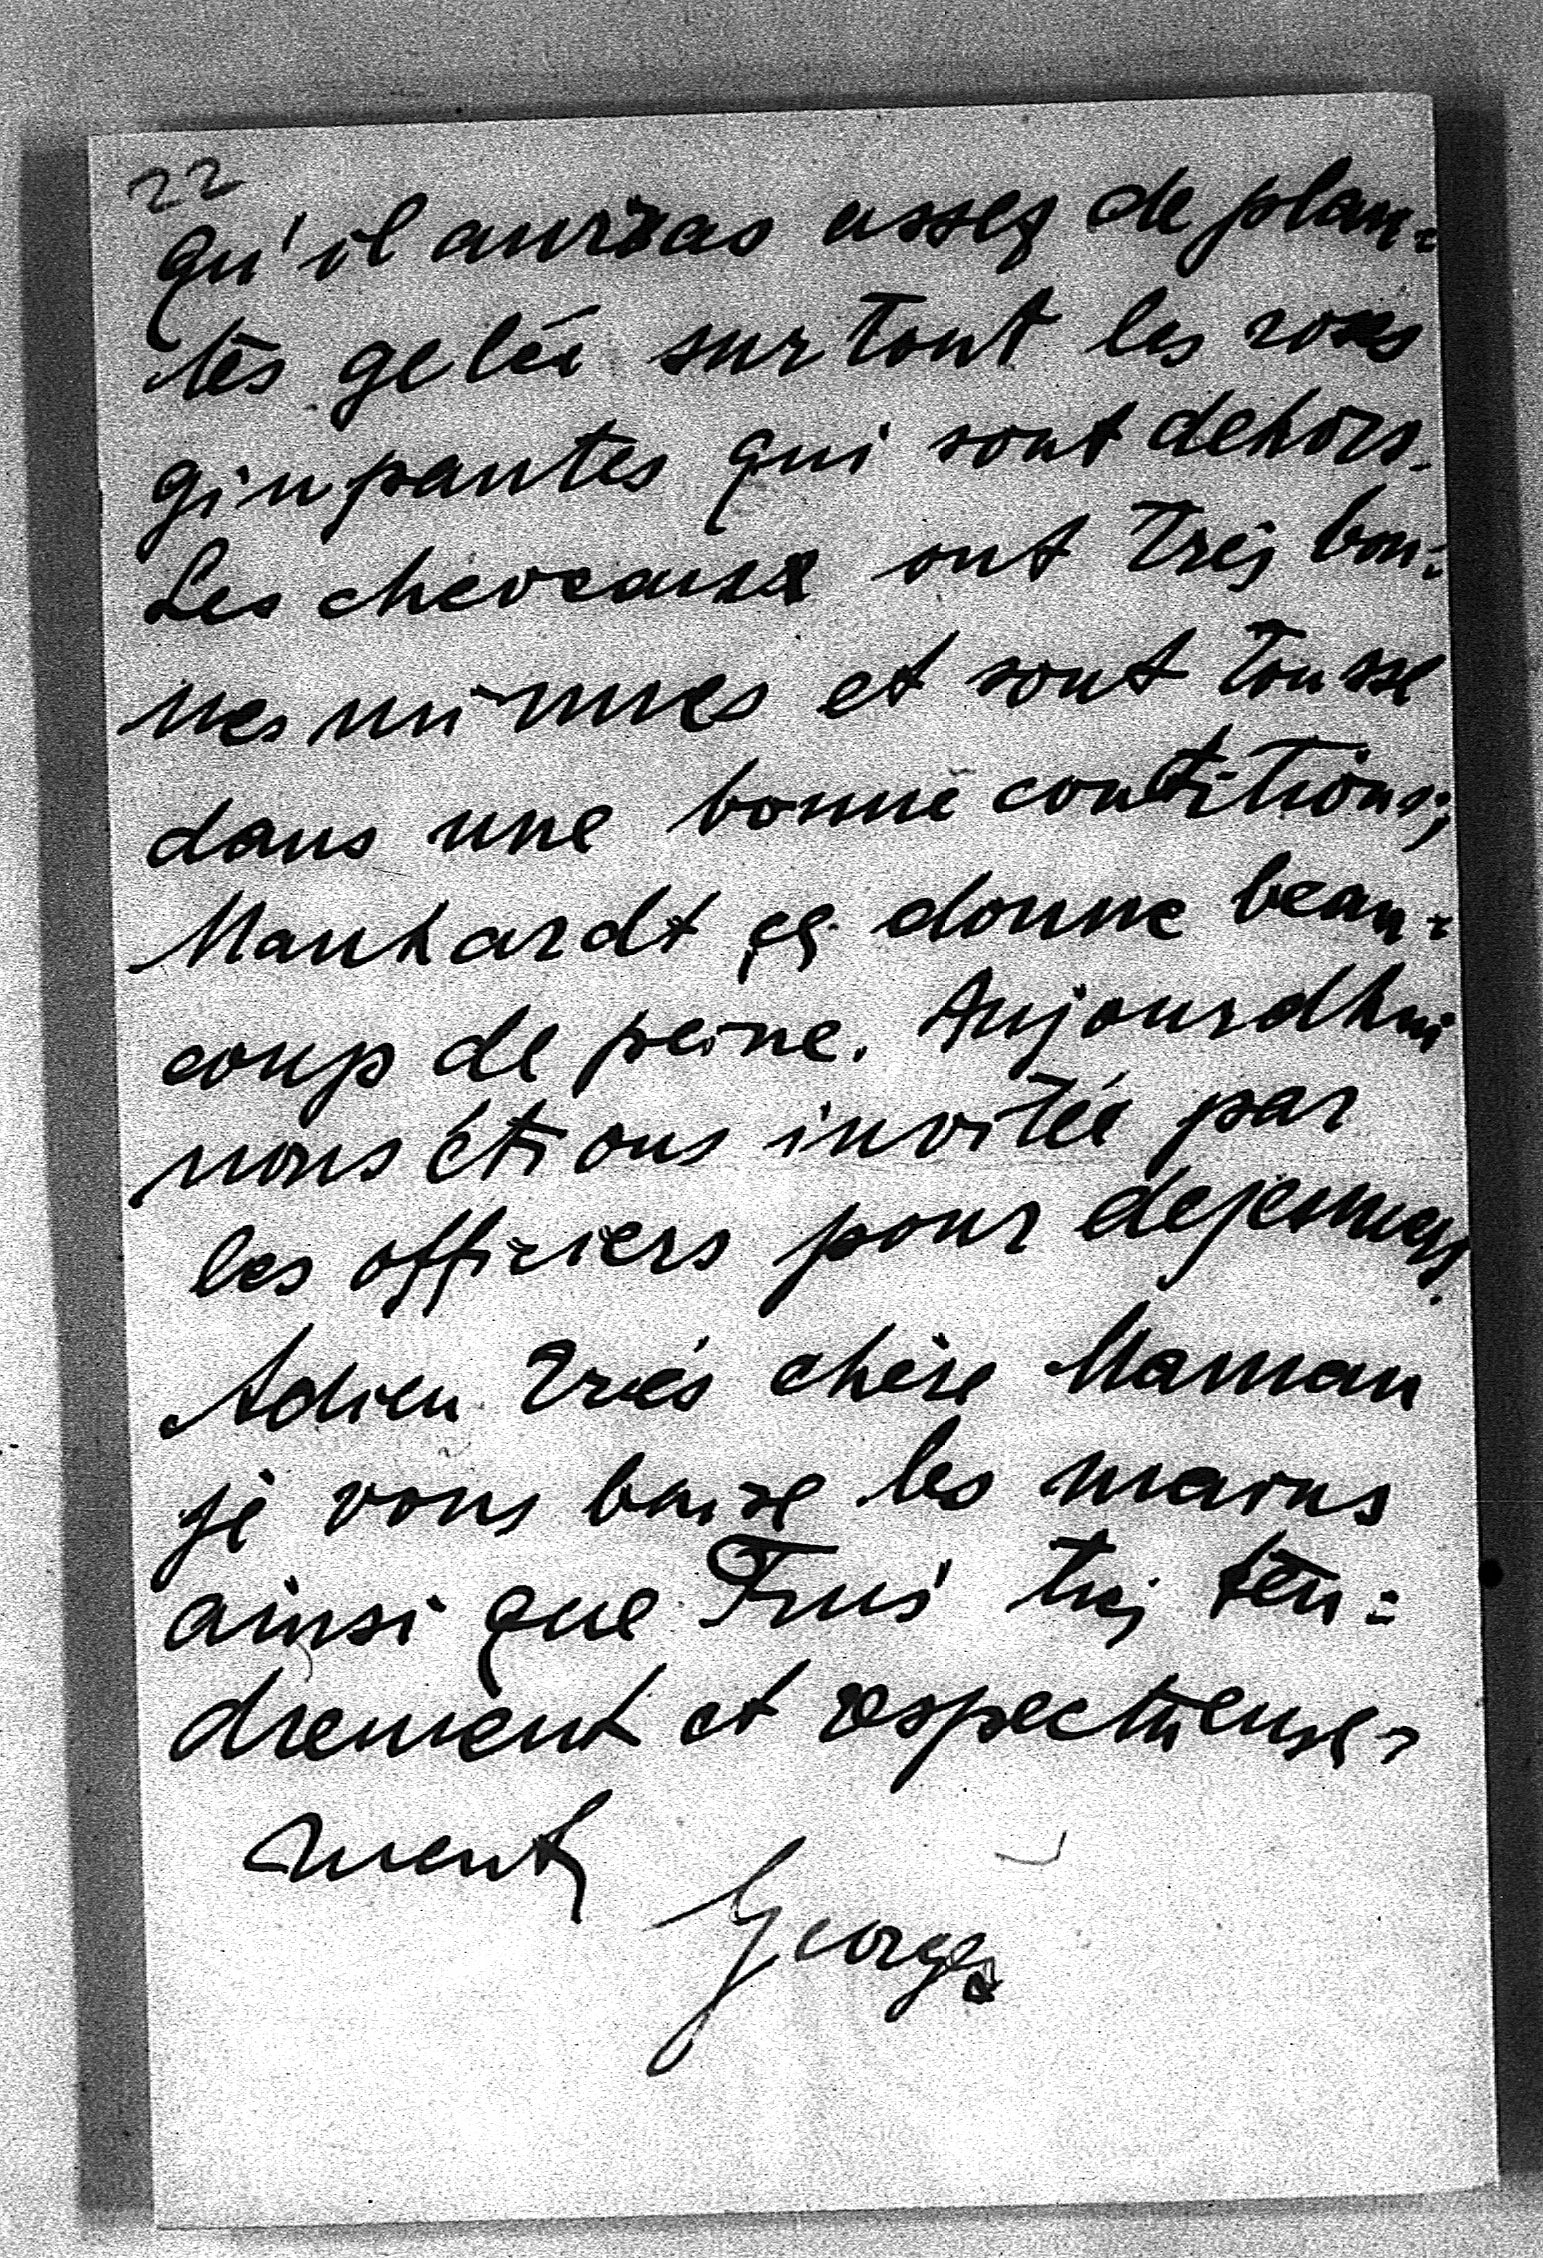 22
qu'il aurras assez de plan=
tes gelée surtout les roses
ginpantes qui sont dehors.
Les cheveauxx ont très bon=
nes minnes et sont tousse
dans une bonne contitions;
Manhardt ça donne beau=
coup de peine. Aujourdhui
nous étions invitée par
les officiers pour dejeuner.
Adieu très chère Maman
je vous baise les mains
ainsi que très ten=
drement et respectueuse=
ment
Georges